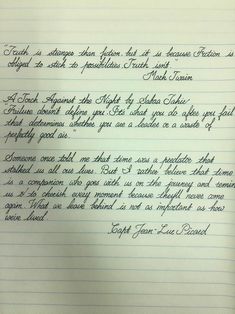 "Truth is stranger than fiction, but it is because Fiction is
obliged to stick to possibilities Truth isn't."
Mark Twain
A Torch Against the Night by Sabaa Tahir
Failure doesn't define you. It's what you do after you fail
that determines whether you are a leader or a waste of
perfectly good air."
Someone once told me that time was a predator that
stalked us all our lives. But I rather believe that time
is a companion who goes with us on the journey and reminds
us to cherish every moment because they'll never come
again. What we leave behind is not as important as how
we've lived.
Capt Jean-Luc Picard